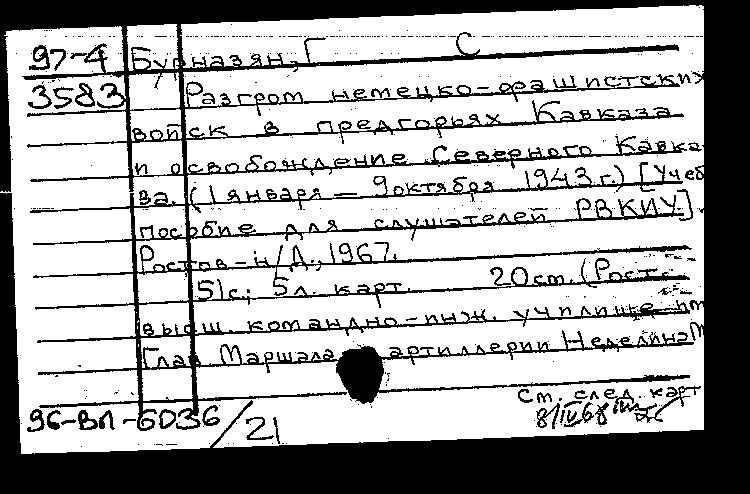 97-4 Бурназян, Г С
3583 Разгром немецко-фашистских
войск в предгорьях Кавказа
и освобождение Северного Кавка-
за. (1 января — 9 октября 1943 г.) [Учеб
пособие для слушателей РВКИУ].
Ростов-н/Д., 1967.
51с; 5л. карт. 20 cm. (Рост.
высш. командно-инж. училище им
Глав Маршала артиллерии Неделина М
См. след. карт
96-ВЛ-6036/21
8/IV68